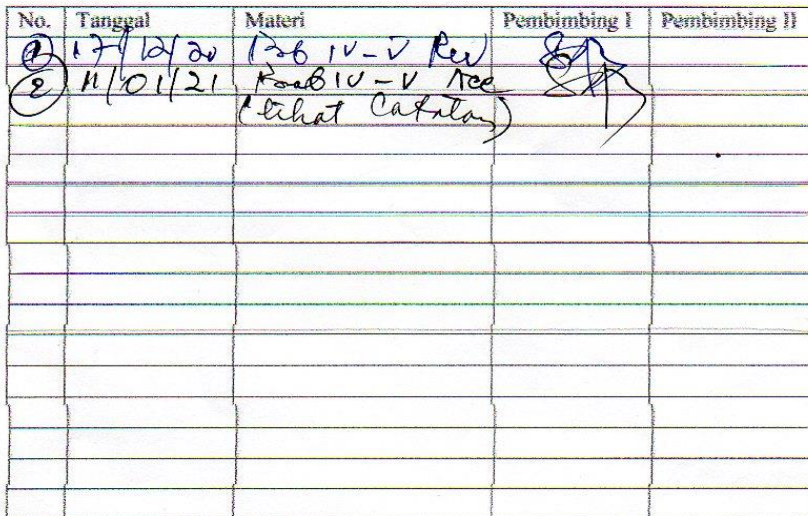 No. Tanggal Materi Pembimbing I Pembimbing II
1 17/12/20 Bab IV-V Rev
2 11/01/21 Bab IV-V Acc
(lihat Catatan)